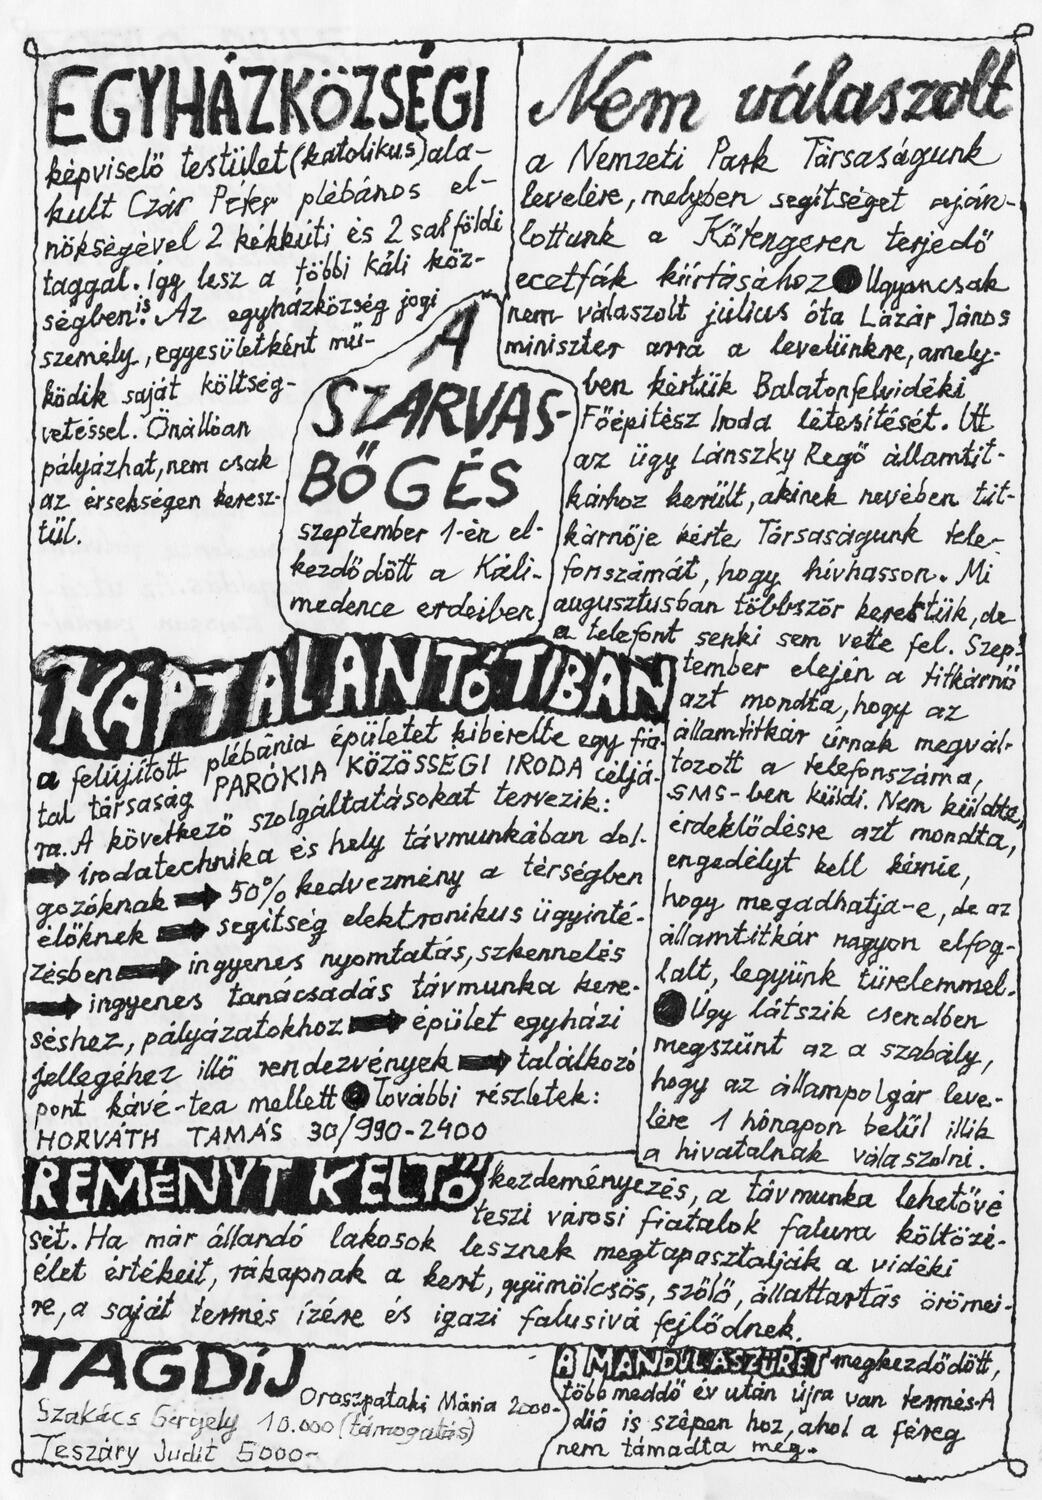 EGYHÁZKÖZSÉGI
képviselő testület (katolikus) ala-
kult Czár Péter plébános el-
nökségével 2 kékkúti és 2 salföldi
taggal. Így lesz a többi káli köz-
ségben is. Az egyházközség jogi
személy, egyesületként mű-
ködik saját költség-
vetéssel. Önállóan
pályázhat, nem csak
az érsekségen keresz-
tül.
A
SZARVAS-
BŐGÉS
szeptember 1-én el-
kezdődött a Káli-
medence erdeiben
Nem válaszolt
a Nemzeti Park Társaságunk
levelére, melyben segítséget aján-
lottunk a Kőtengeren terjedő
ecetfák kiirtásához ● Ugyancsak
nem válaszolt július óta Lázár János
miniszter arra a levelünkre, amely-
ben kértük Balatonfelvidéki
Főépítész Iroda létesítését. Ott
az ügy Lánszky Regő államtit-
kárhoz került, akinek nevében tit-
kárnője kérte Társaságunk tele-
fonszámát, hogy hívhasson. Mi
augusztusban többször kerestük, de
a telefont senki sem vette fel. Szep-
tember elején a titkárnő
azt mondta, hogy az
államtitkár úrnak megvál-
tozott a telefonszáma,
SMS-ben küldi. Nem küldte,
érdeklődésre azt mondta,
engedélyt kell kérnie,
hogy megadhatja-e, de az
államtitkár nagyon elfog-
lalt, legyünk türelemmel.
● Úgy látszik csendben
megszűnt az a szabály,
hogy az állampolgár leve-
lére 1 hónapon belül illik
a hivatalnak válaszolni.
KÁPTALANTÓTIBAN
a felújított plébánia épületet kibérelte egy fia-
tal társaság PARÓKIA KÖZÖSSÉGI IRODA céljá-
ra. A következő szolgáltatásokat tervezik:
➡ irodatechnika és hely távmunkában dol-
gozóknak ➡ 50% kedvezmény a térségben
élőknek ➡ segítség elektronikus ügyinté-
zésben ➡ ingyenes nyomtatás, szkennelés
➡ ingyenes tanácsadás távmunka kere-
séshez, pályázatokhoz ➡ épület egyházi
jellegéhez illő rendezvények ➡ találkozó
pont kávé-tea mellett ● További részletek:
HORVÁTH TAMÁS 30/990-2400
REMÉNYT KELTŐ kezdeményezés, a távmunka lehetővé
teszi városi fiatalok falura költözé-
sét. Ha már állandó lakosok lesznek megtapasztalják a vidéki
élet értékeit, rákapnak a kert, gyümölcsös, szőlő, állattartás örömei-
re, a saját termés ízére és igazi falusivá fejlődnek.
TAGDÍJ
Oroszpataki Mária 2000-
Szakács Gergely 10.000 (támogatás)
Teszáry Judit 5000-
A MANDULASZÜRET megkezdődött,
több meddő év után újra van termés. A
dió is szépen hoz, ahol a féreg
nem támadta meg.